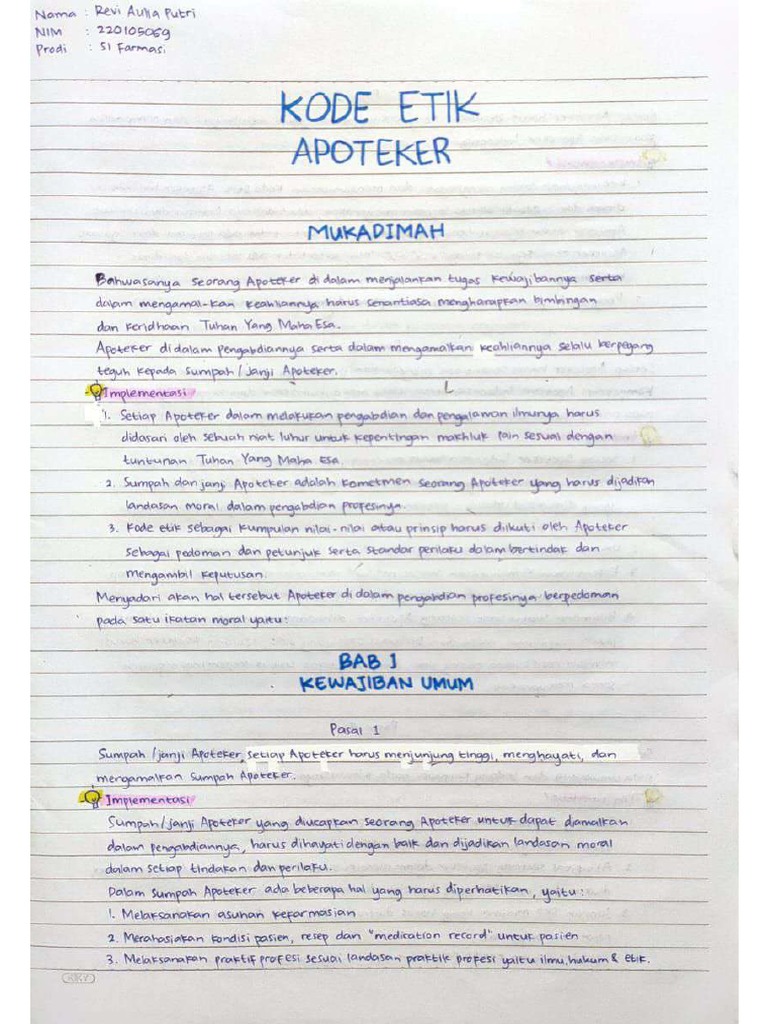 Nama : Revi Aulia Putri
NIM : 220105069
Prodi : S1 Farmasi
KODE ETIK
APOTEKER
MUKADIMAH
Bahwasanya seorang Apoteker di dalam menjalankan tugas kewajibannya serta
dalam mengamal-kan keahliannya harus senantiasa mengharapkan bimbingan
dan keridhoan Tuhan Yang Maha Esa.
Apoteker di dalam pengabdiannya serta dalam mengamalkan keahliannya selalu berpegang
teguh kepada sumpah / janji Apoteker.
Implementasi
1. Setiap Apoteker dalam melakukan pengabdian dan pengalaman ilmunya harus
didasari oleh sebuah niat luhur untuk kepentingan makhluk lain sesuai dengan
tuntunan Tuhan Yang Maha Esa.
2. Sumpah dan janji Apoteker adalah kometmen seorang Apoteker yang harus dijadikan
landasan moral dalam pengabdian profesinya.
3. Kode etik sebagai kumpulan nilai-nilai atau prinsip harus diikuti oleh Apoteker
sebagai pedoman dan petunjuk serta standar perilaku dalam bertindak dan
mengambil keputusan.
Menyadari akan hal tersebut Apoteker di dalam pengabdian profesinya berpedoman
pada satu ikatan moral yaitu:
BAB 1
KEWAJIBAN UMUM
Pasal 1
Sumpah / janji Apoteker, setiap Apoteker harus menjunjung tinggi, menghayati, dan
mengamalkan Sumpah Apoteker.
Implementasi
Sumpah / janji Apoteker yang diucapkan seorang Apoteker untuk dapat diamalkan
dalam pengabdiannya, harus dihayati dengan baik dan dijadikan landasan moral
dalam setiap tindakan dan perilaku.
Dalam sumpah Apoteker ada beberapa hal yang harus diperhatikan, yaitu :
1. Melaksanakan asuhan kefarmasian
2. Merahasiakan kondisi pasien, resep dan "medication record" untuk pasien
3. Melaksanakan praktif profesi sesuai landasan praktik profesi yaitu ilmu, hukum & etik.